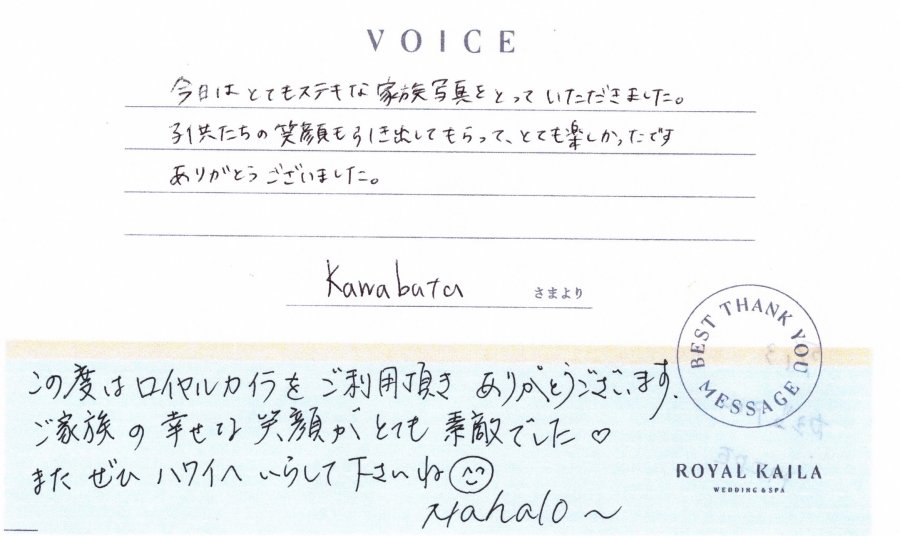 VOICE
今日はとてもステキな家族写真をとっていただきました。
子供たちの笑顔も引き出してもらって、とても楽しかったです
ありがとうございました。
Kawabata さまより
BEST THANK YOU MESSAGE
この度はロイヤルカイラをご利用頂きありがとうございます。
ご家族の幸せな笑顔がとても素敵でした♡
またぜひハワイへいらして下さいね
Mahalo~
ROYAL KAILA
WEDDING & SPA